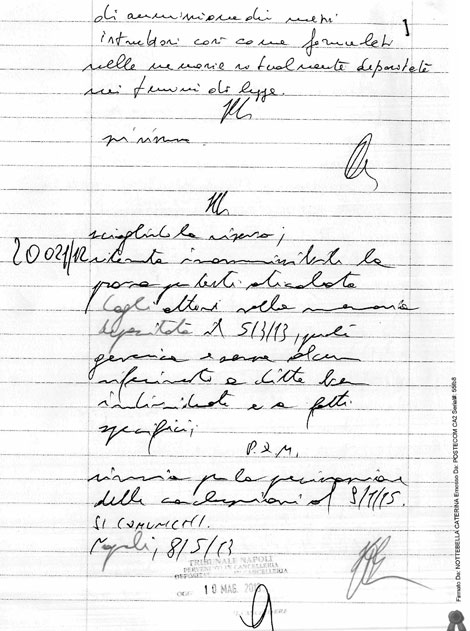 di ammissione dei mezzi
istruttori così come formulati
nelle memorie ritualmente depositate
nei termini di legge.
sciogliendo la riserva;
20021/12 ritenuta inammissibile la
prova per testi articolata
dagli attori nella memoria
depositata il 5/3/13, perché
generica e senza alcun
riferimento a ditte ben
individuate e a fatti
specifici;
P.Q.M.
rinvia per la precisazione
delle conclusioni al 9/1/15.
SI COMUNICHI.
Napoli, 8/5/13
TRIBUNALE NAPOLI
PERVENUTO IN CANCELLERIA
DEPOSITATO CANCELLERIA
OGGI 10 MAG. 2013
Firmato Da: NOTTEBELLA CATERINA Emesso Da: POSTECOM CA2 Serial#: 55fb8